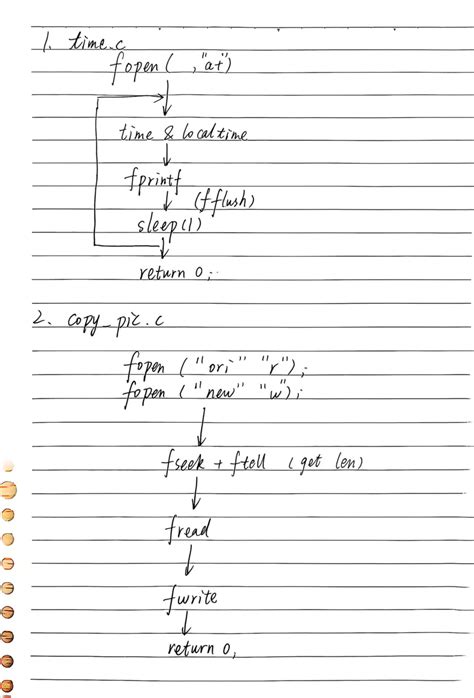 1. time.c
fopen( ,"a+")
time & localtime
fprintf
(fflush)
sleep(1)
return 0;
2. copy_pic.c
fopen ("ori" "r");
fopen ("new" "w");
fseek + ftell (get len)
fread
fwrite
return 0,